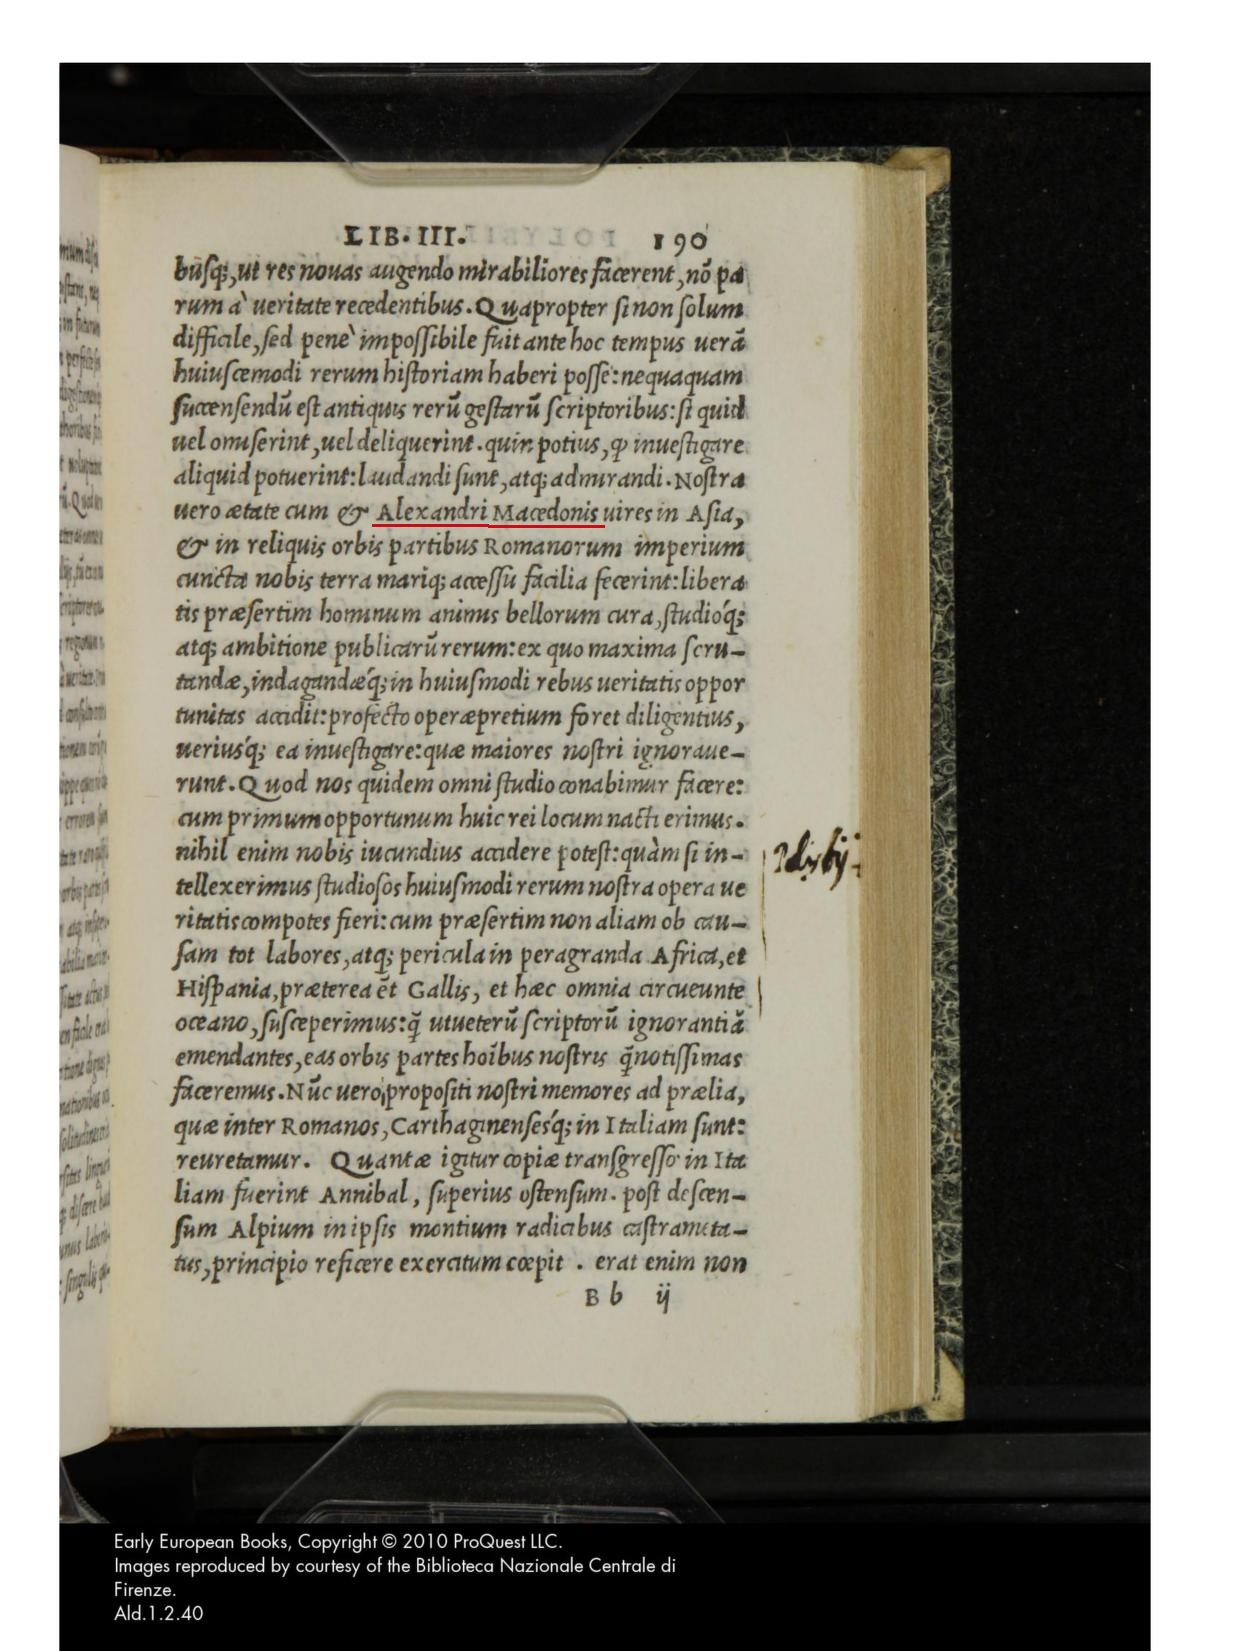 LIB. III. 190
busq;, ut res nouas augendo mirabiliores facerent, nõ pa
rum à ueritate recedentibus. Quapropter si non solum
difficile, sed penè impossibile fuit ante hoc tempus uerã
huiuscemodi rerum historiam haberi posse: nequaquam
succensendũ est antiquis rerũ gestarũ scriptoribus: si quid
uel omiserint, uel deliquerint. quin potius, ꝙ inuestigare
aliquid potuerint: laudandi sunt, atq; admirandi. Nostra
uero ætate cum & Alexandri Macedonis uires in Asia,
& in reliquis orbis partibus Romanorum imperium
cuncta nobis terra mariq; accessu facilia fecerint: libera
tis præsertim hominum animis bellorum cura, studioq́;
atq; ambitione publicarũ rerum: ex quo maxima scru-
tandæ, indagandæq́; in huiusmodi rebus ueritatis oppor
tunitas accidit: profecto operæpretium foret diligentius,
ueriusq́; ea inuestigare: quæ maiores nostri ignoraue-
runt. Quod nos quidem omni studio conabimur facere:
cum primum opportunum huic rei locum nacti erimus.
nihil enim nobis iucundius accidere potest: quàm si in-
tellexerimus studiosos huiusmodi rerum nostra opera ue
ritatis compotes fieri: cum præsertim non aliam ob cau-
sam tot labores, atq; pericula in peragranda Africa, et
Hispania, præterea ẽt Gallis, et hæc omnia circueunte
oceano, susceperimus: q̃ ut ueterũ scriptorũ ignorantiã
emendantes, eas orbis partes hoĩbus nostris q̃ notissimas
faceremus. Nũc uero propositi nostri memores ad prælia,
quæ inter Romanos, Carthaginensesq́; in Italiam sunt:
reuretamur. Quantæ igitur copiæ transgresso in Ita
liam fuerint Annibal, superius ostensum. post descen-
sum Alpium in ipsis montium radicibus castrameta-
tus, principio reficere exercitum cœpit. erat enim non
Bb ij
Early European Books, Copyright © 2010 ProQuest LLC.
Images reproduced by courtesy of the Biblioteca Nazionale Centrale di
Firenze.
Ald.1.2.40